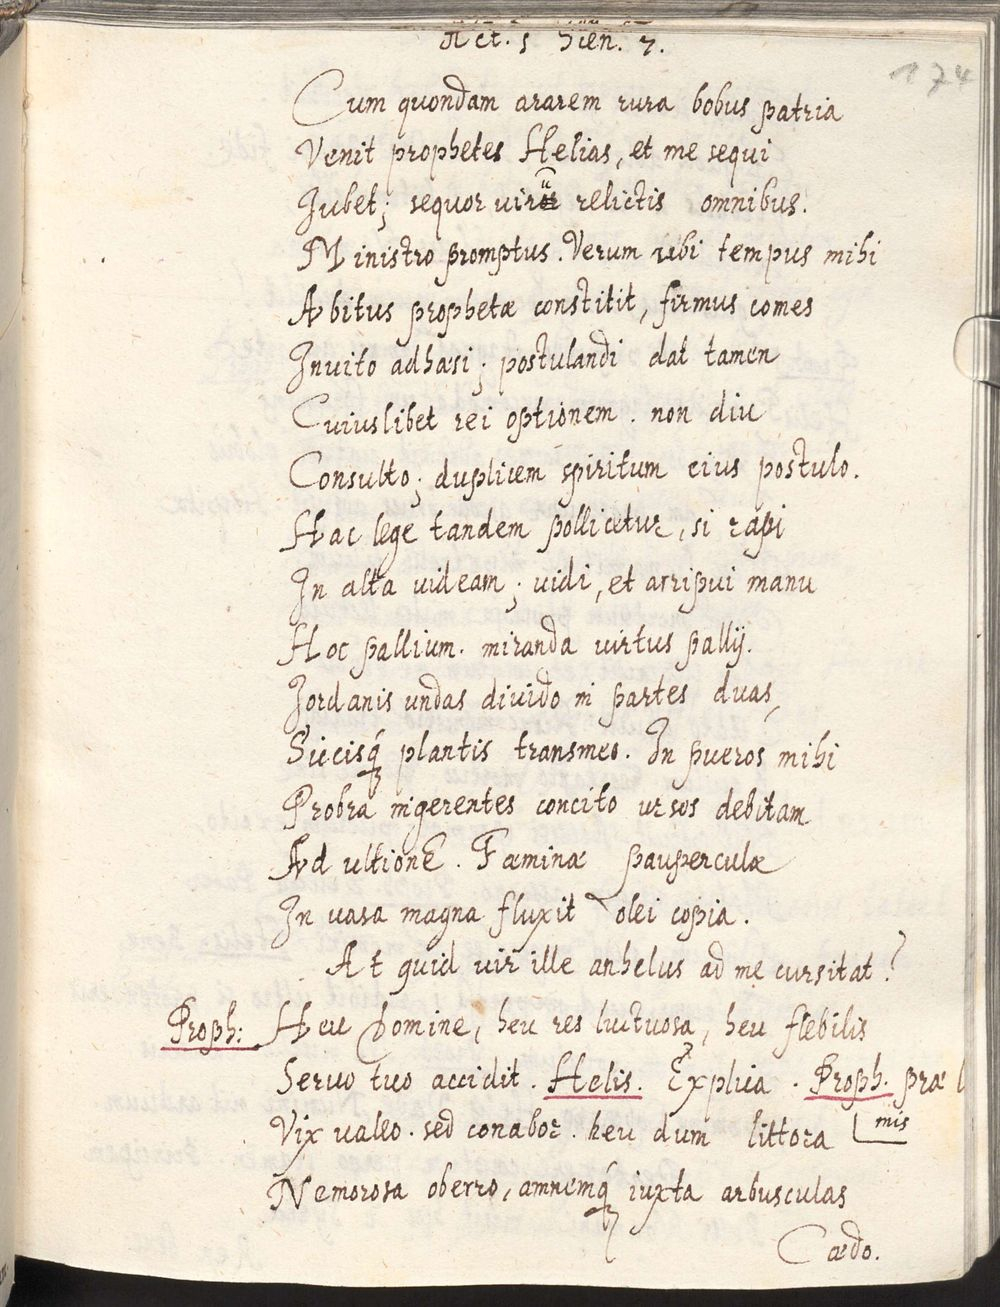 Act. 5 Scen. 7.
174
Cum quondam ararem rura bobus patria
Venit prophetes Helias, et me sequi
Jubet; sequor virũ relictis omnibus.
Ministro promptus. Verum ubi tempus mihi
Abitus prophetæ constitit, firmus comes
Invito adhæsi; postulandi dat tamen
Cuiuslibet rei optionem. non diu
Consulto; duplicem spiritum eius postulo.
Hac lege tandem pollicetur, si rapi
In alta videam; vidi, et arripui manu
Hoc pallium. miranda virtus pallij.
Jordanis undas divido in partes duas,
Siccisq́ plantis transmeo. In pueros mihi
Probra ingerentes concito ursos debitam
Ad ultionē. Fæminæ pauperculæ
In vasa magna fluxit olei copia.
At quid vir ille anhelus ad me cursitat?
Proph: Heu Domine, heu res luctuosa, heu flebilis
Servo tuo accidit. Helis. Explica. Proph. præ l
Vix valeo. sed conabor. heu dum littora mis
Nemorosa oberro, amnemq́ iuxta arbusculas
Cædo.